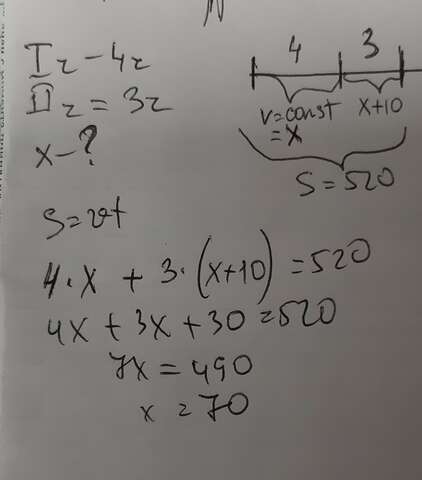 I г - 4г
II г = 3г
x - ?
4 3
v=const x+10
= x
S = 520
S = vt
4·x + 3·(x+10) = 520
4x + 3x + 30 = 520
7x = 490
x = 70